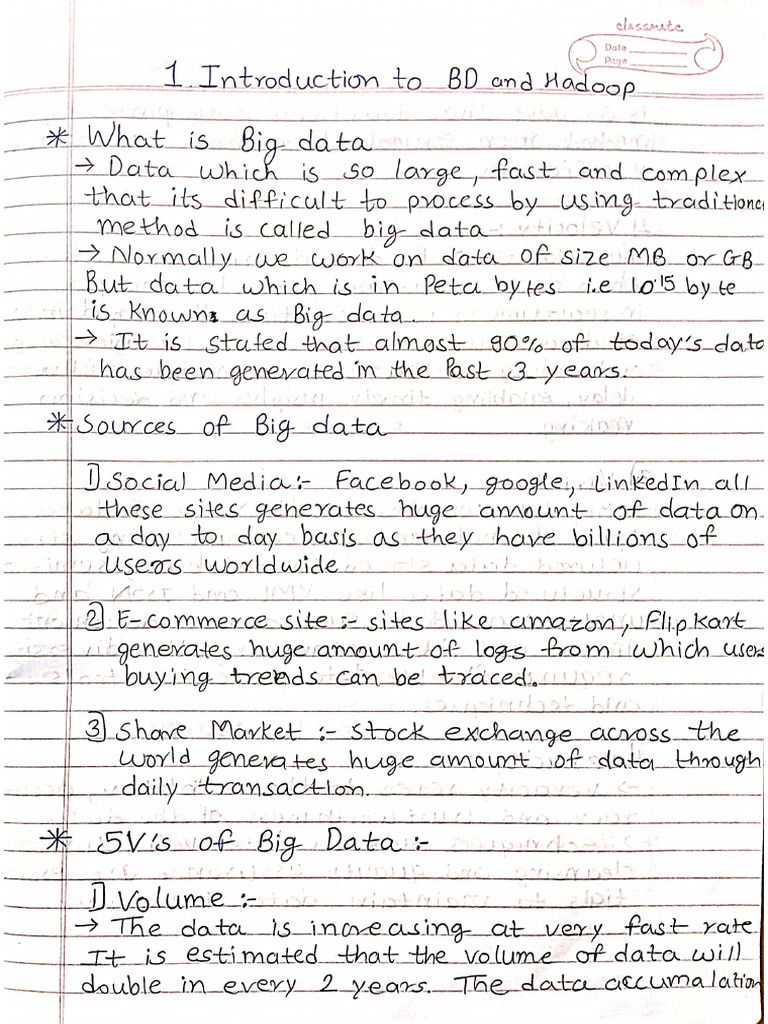 classmate
Date
Page
1. Introduction to BD and Hadoop
* What is Big data
→ Data which is so large, fast and complex
that its difficult to process by using traditional
method is called big data.
→ Normally we work on data of size MB or GB
But data which is in Peta bytes i.e 10^15 byte
is known as Big data.
→ It is stated that almost 90% of today's data
has been generated in the Past 3 years.
* Sources of Big data
1) Social Media:- Facebook, google, LinkedIn all
these sites generates huge amount of data on
a day to day basis as they have billions of
users worldwide
2) E-commerce site :- sites like amazon, Flipkart
generates huge amount of logs from which users
buying trends can be traced.
3) Share Market :- stock exchange across the
world generates huge amount of data through
daily transaction.
* 5V's of Big Data :-
1) Volume :-
→ The data is increasing at very fast rate
It is estimated that the volume of data will
double in every 2 years. The data accumalation